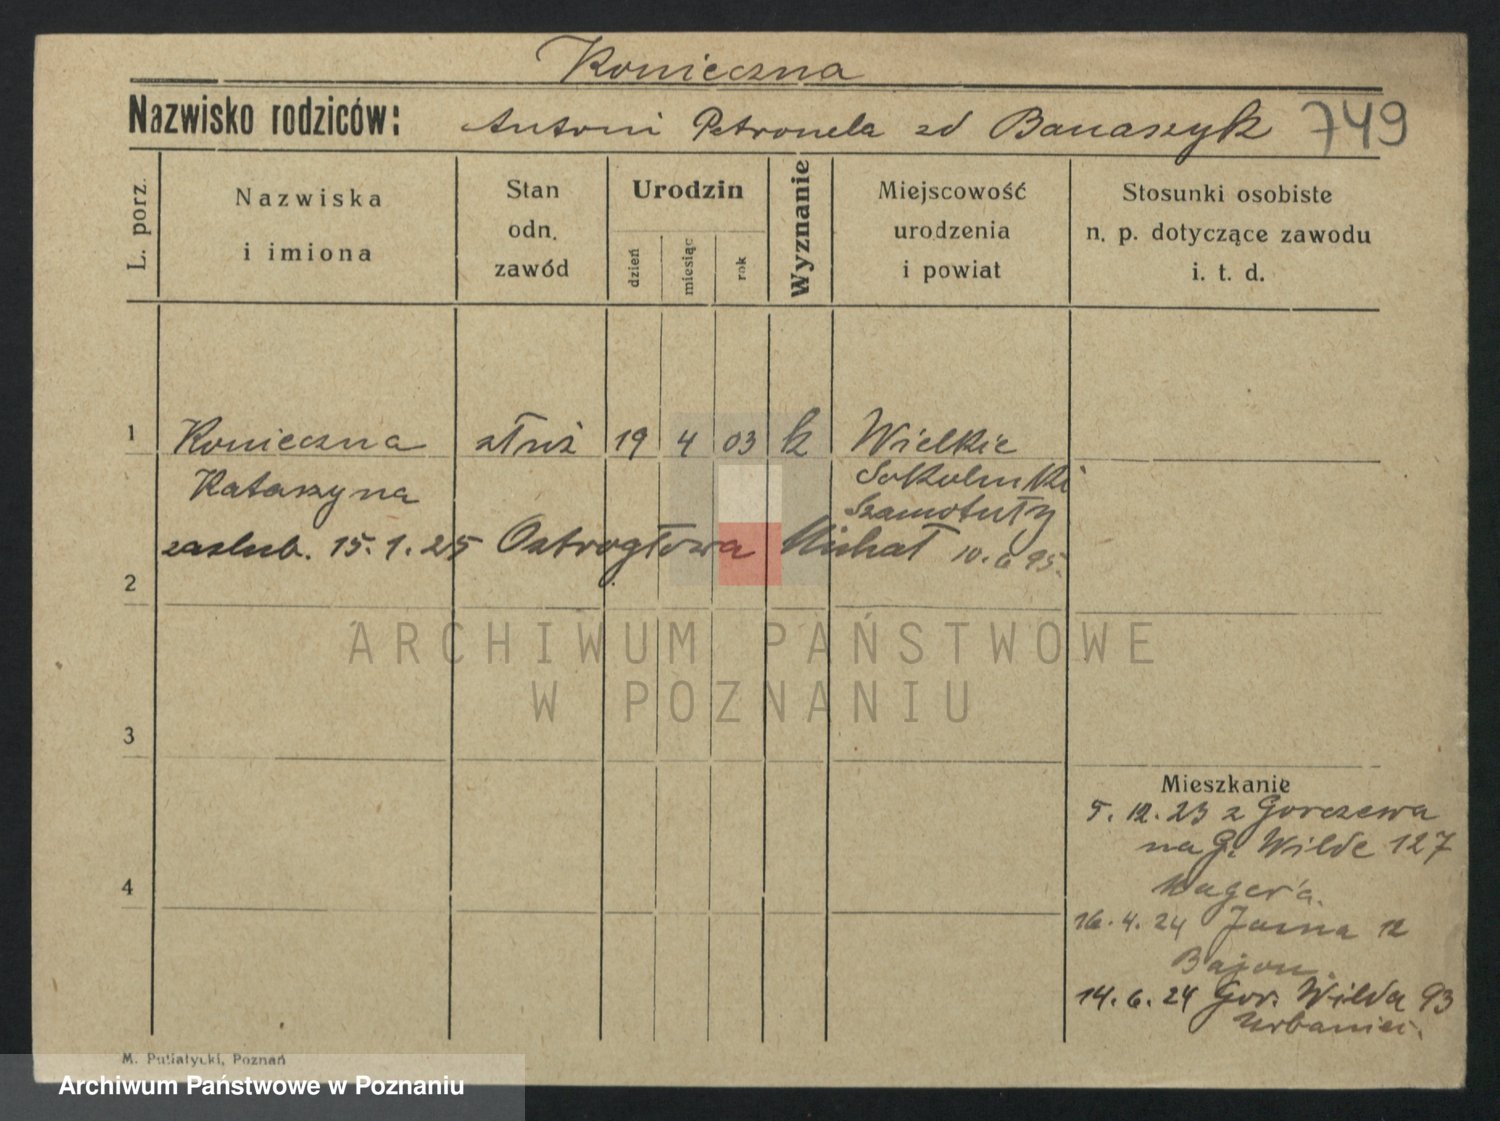 Konieczna
Nazwisko rodziców: Antoni Petronela zd Banaszyk 749
L. porz.
Nazwiska
i imiona
Stan
odn.
zawód
Urodzin
dzień
miesiąc
rok
Wyznanie
Miejscowość
urodzenia
i powiat
Stosunki osobiste
n. p. dotyczące zawodu
i. t. d.
1 Konieczna służ 19 4 03 k Wielkie
Katarzyna Sokolniki
Szamotuły
zaślub. 15.1.25 Ostrogłowa Michał 10.6.95.
2
ARCHIWUM PAŃSTWOWE
W POZNANIU
3
Mieszkanie
5.12.23 z Gorczewa
na G. Wilde 127
4
16.4.24 Jasna 12
14.6.24 Gór. Wilda 93
M. Putiatycki, Poznań
Archiwum Państwowe w Poznaniu